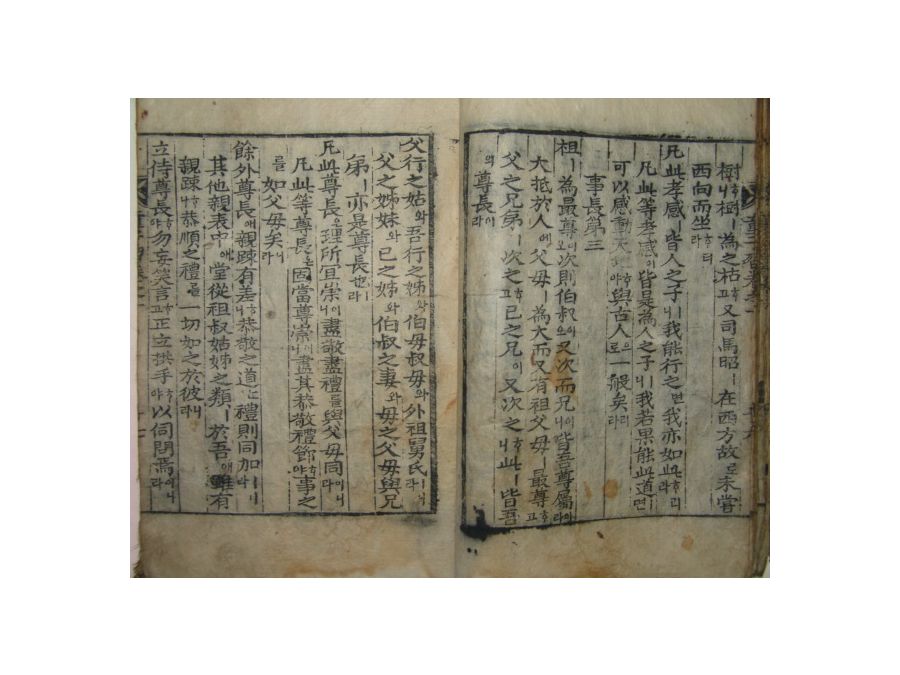 樹ᄒᆞ니樹ㅣ為之枯ᄒᆞ고又司馬昭ㅣ在西方故로未嘗
西向而坐ᄒᆞ터라
凡此孝感ㅣ皆人之子ㅣ니我能行之면我亦如此ᄒᆞ리라
凡此等孝感이皆是為人之子ㅣ니我若果能此道면
可以感動天地ᄒᆞ야與古人으로一般矣리라
事長第三
祖ㅣ為最尊이오次則伯叔이오又次而兄이니皆吾尊屬이라
大抵於人에父母ㅣ為大而又有祖父母ㅣ最尊ᄒᆞ고
父之兄弟ㅣ次之ᄒᆞ고己之兄이又次之ᄒᆞ니此ㅣ皆吾
의尊長이라
父行之姑와吾行之姊와伯母叔母와外祖舅氏ㅣ니라
父之姊妹와己之姊와伯叔之妻와母之父母與兄
弟ㅣ亦是尊長也ㅣ라
凡此尊長은理所宜崇이니盡敬盡禮를與父母同이니라
凡此等尊長은固當尊崇이니盡其恭敬禮節ᄒᆞ야事之
를如父母矣니라
餘外尊長애親踈有差ᄒᆞ니恭敬之道ᄂᆞᆫ禮則同加ㅣ니라
其他親表中애堂從祖叔姑姊之類ㅣ於吾애雖有
親踈ᄒᆞ나恭順之禮를一切如之於彼니라
立侍尊長ᄒᆞ야勿妄笑言ᄒᆞ고正立拱手ᄒᆞ야以伺問焉이니라